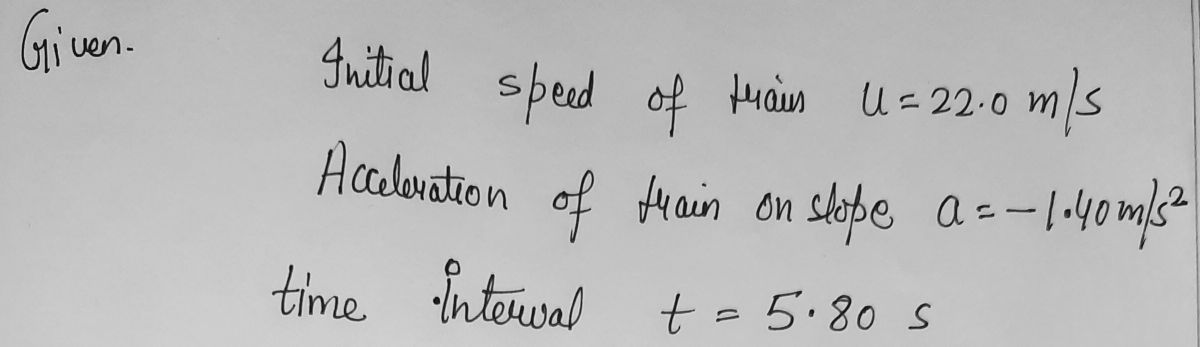 Given.
Initial speed of train u = 22.0 m/s
Acceleration of train on slope a = -1.40 m/s²
time interval t = 5.80 s